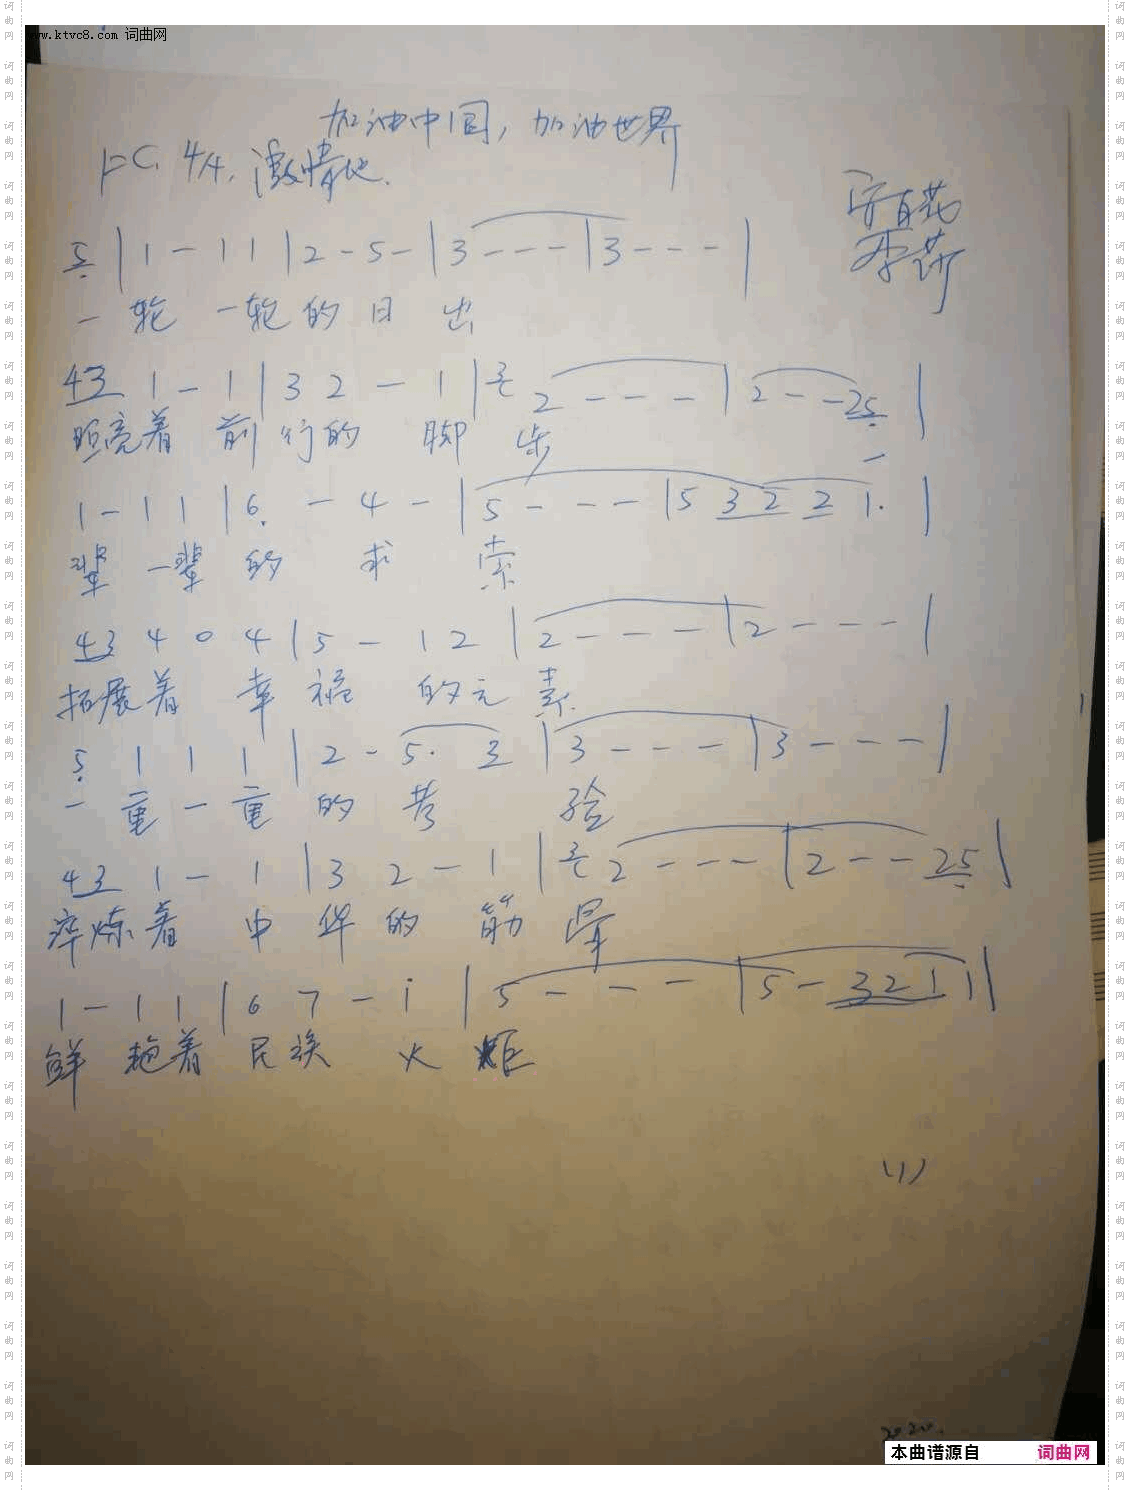 www.ktvc8.com 词曲网
加油中国，加油世界
1=C 4/4. 激情地.
李莎
5̣ | 1 - 1 1 | 2 - 5 - | 3 - - - | 3 - - - |
一 轮 一轮 的 日 出
43 1 - 1 | 3 2 - 1 | 3 2 - - - | 2 - - 25̣ |
照亮着 前 行的 脚 步 一
1 - 1 1 | 6̣ - 4 - | 5 - - - | 5 3 2 2 1. |
辈 一辈 的 求 索
43 4 0 4 | 5 - 1 2 | 2 - - - | 2 - - - |
拓展着 幸 福 的元 素.
5̣ 1 1 1 | 2 - 5. 3 | 3 - - - | 3 - - - |
一 重 一 重 的 考 验
43 1 - 1 | 3 2 - 1 | 3 2 - - - | 2 - - 25̣ |
淬炼着 中 华 的 筋 骨
1 - 1 1 | 6 7 - i | 5 - - - | 5 - 321 1 |
鲜 艳着 民 族 火 炬
(1)
本曲谱源自 词曲网
词曲网